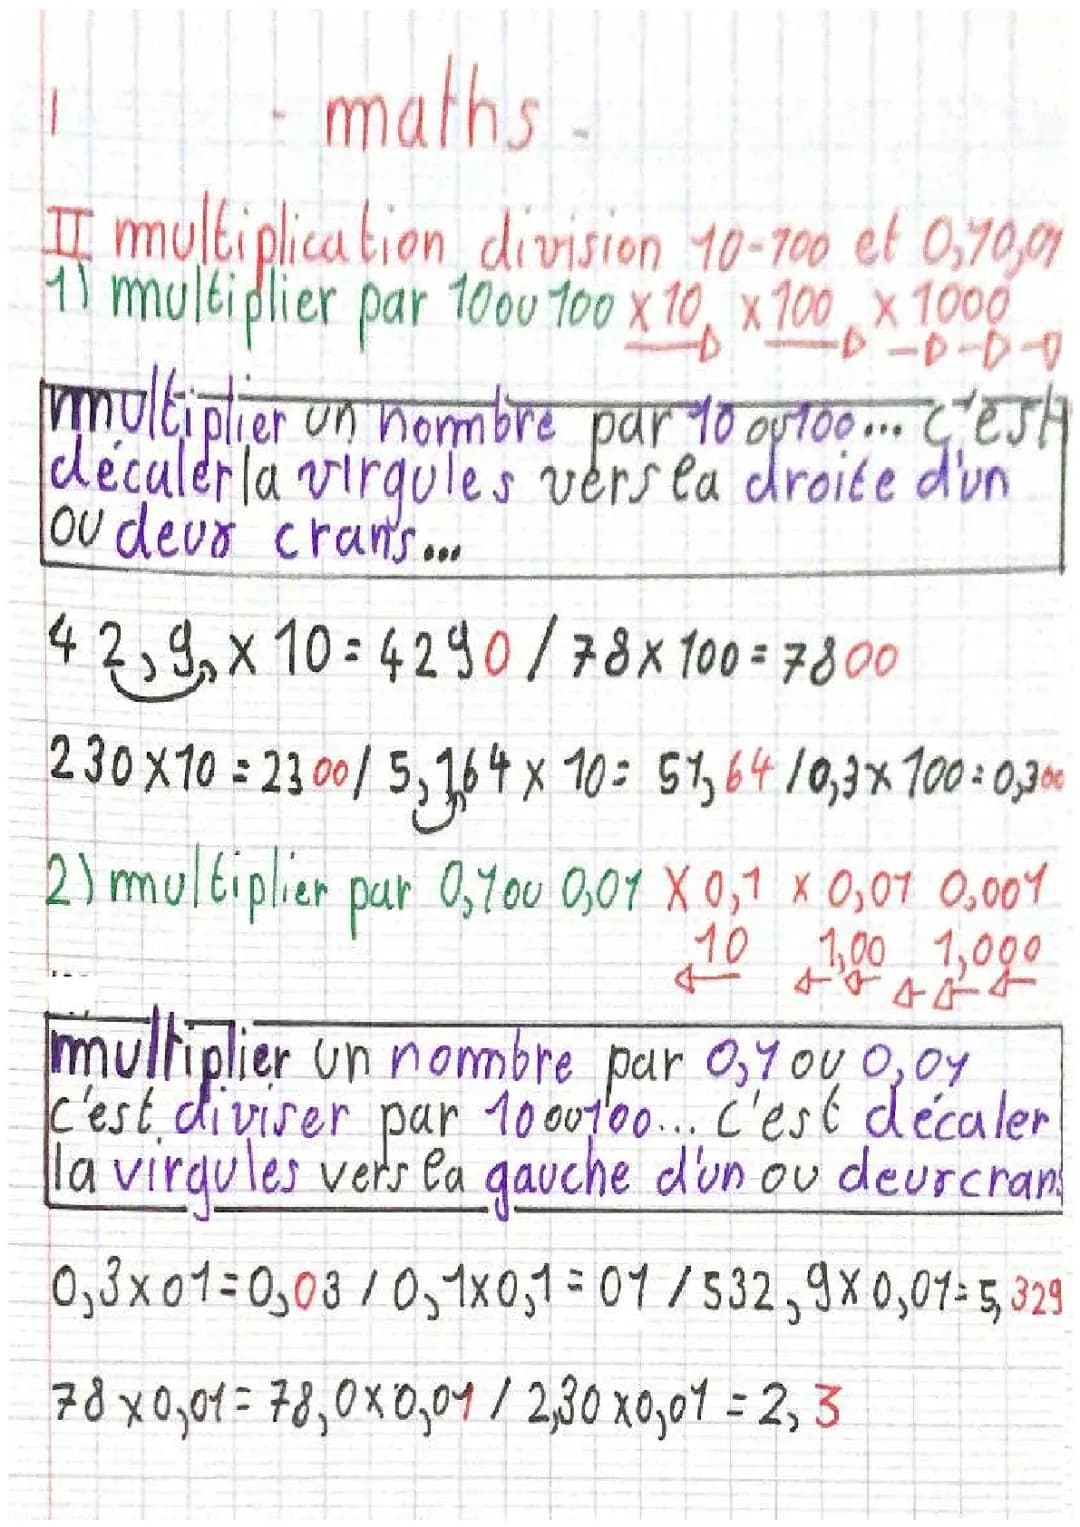 1 - maths -
II multiplication division 10-100 et 0,10,01
1) multiplier par 10ou 100 x 10 x 100 x 1000
multiplier un nombre par 10 ou 100... c'est
décaler la virgules vers la droite d'un
ou deux crans...
42,9, x 10 = 4290 / 78 x 100 = 7800
230 x 10 = 2300 / 5,164 x 10 = 51,64 / 0,3 x 100 = 0,300
2) multiplier par 0,1 ou 0,01 x 0,1 x 0,01 0,001
10 1,00 1,000
...
multiplier un nombre par 0,1 ou 0,01
c'est diviser par 10 ou 100... c'est décaler
la virgules vers la gauche d'un ou deux crans
0,3 x 01 = 0,03 / 0,1 x 0,1 = 01 / 532,9 x 0,01 = 5,329
78 x 0,01 = 78,0 x 0,01 / 2,30 x 0,01 = 2,3